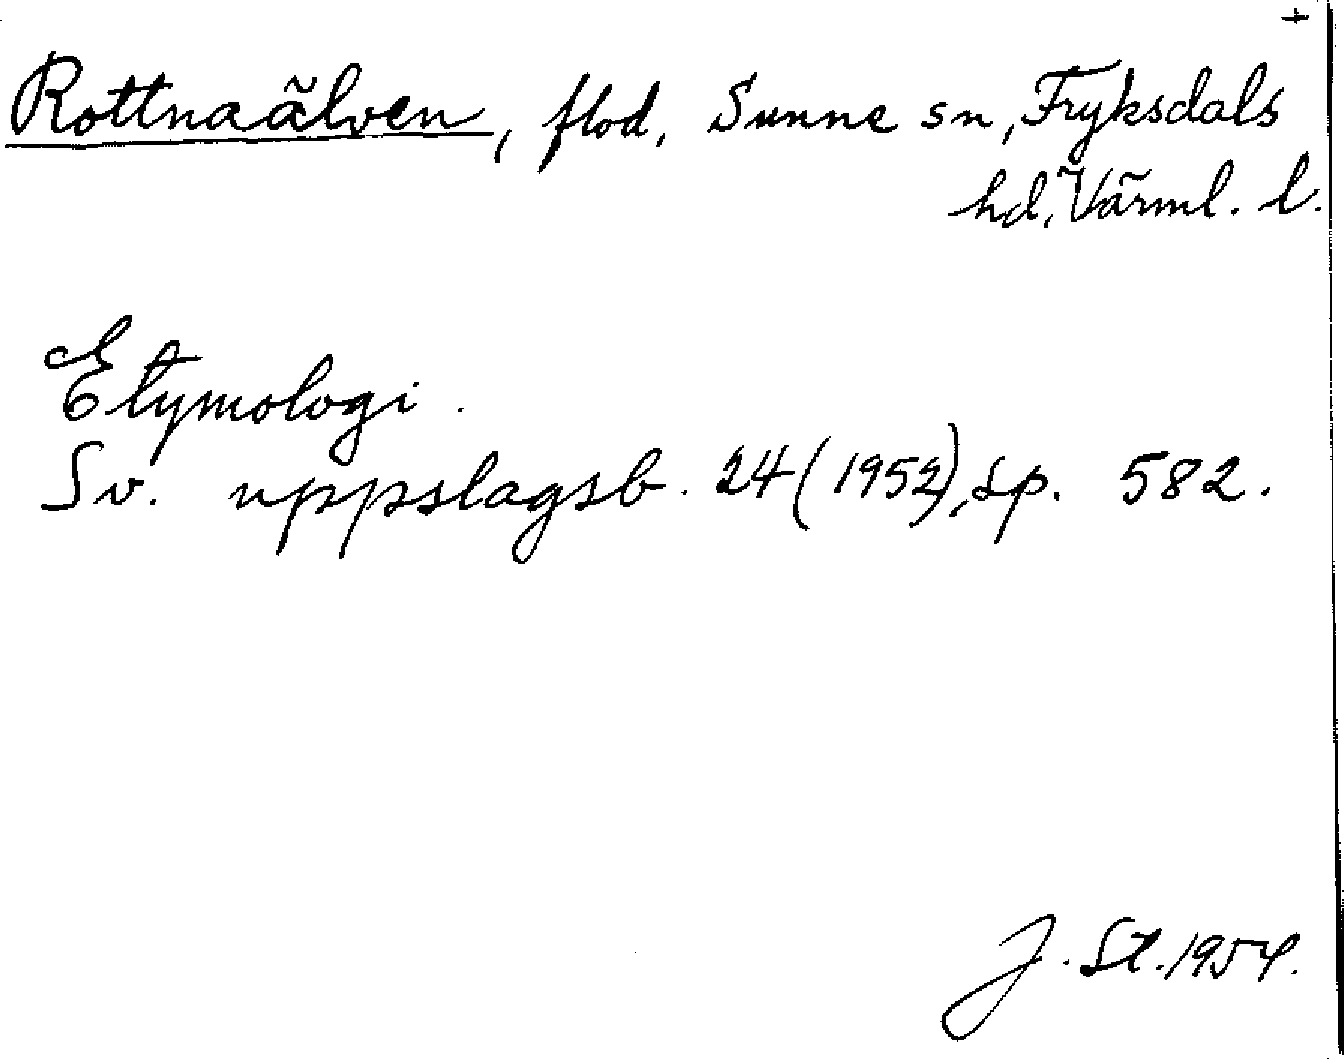 +
Rottnaälven, flod, Sunne sn, Fryksdals
hd, Värml. l.
Etymologi.
Sv. uppslagsb. 24 (1952), sp. 582.
J. St. 1954.